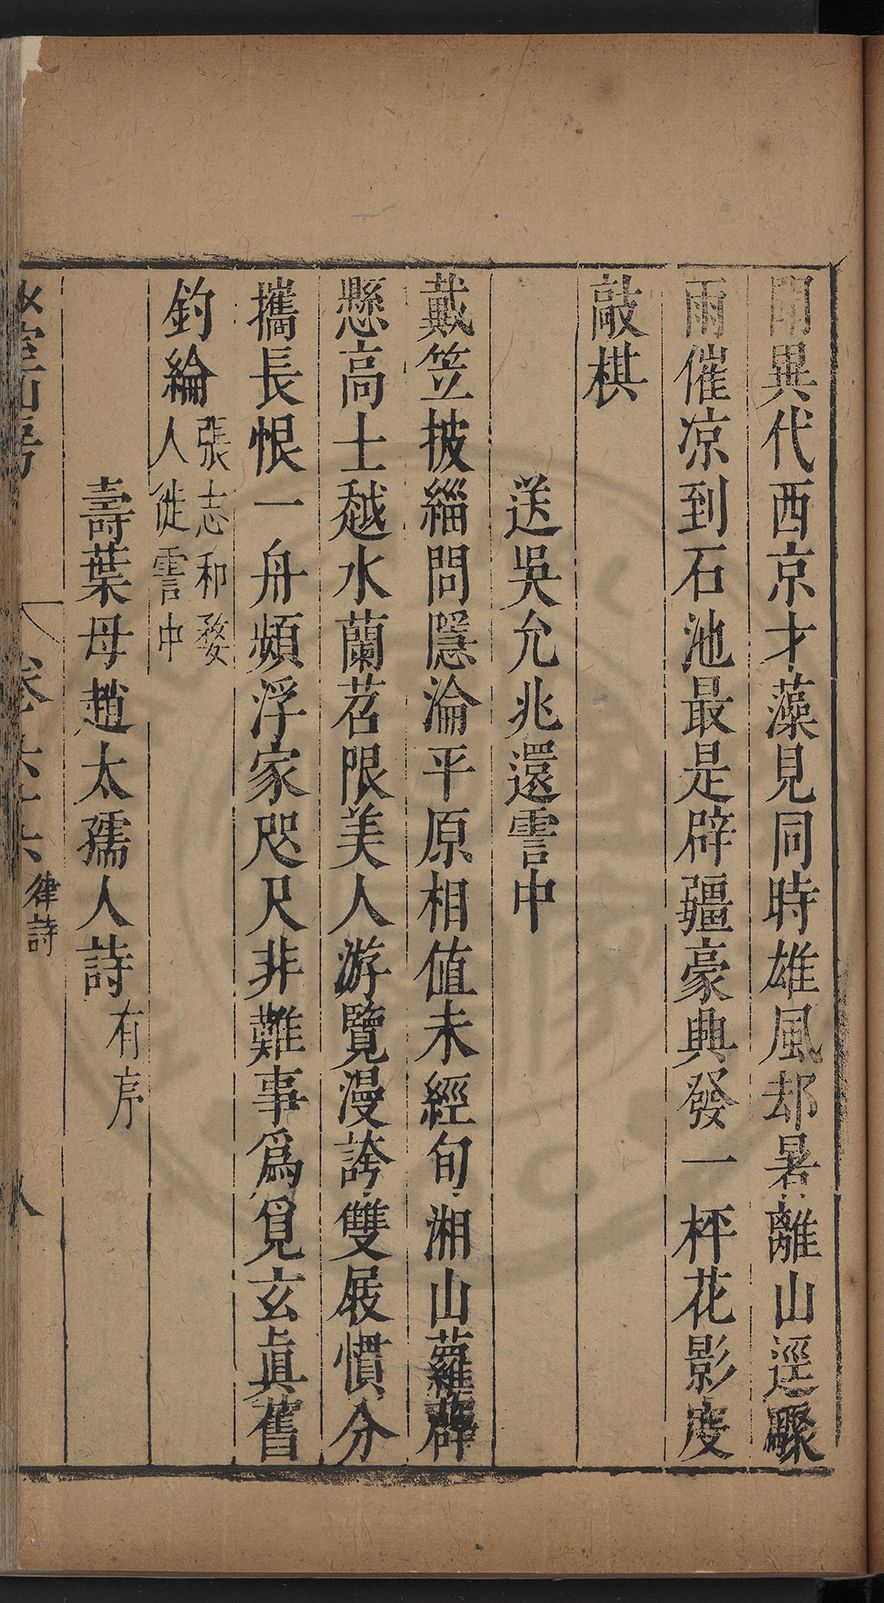 聞異代西京才藻見同時雄風却暑離山逕驟
雨催凉到石池最是辟疆豪興發一枰花影度
敲棋
送吳允兆還霅中
戴笠披緇問隱淪平原相值未經旬湘山蘿薜
懸高士越水蘭苕限美人游覽漫誇雙屐慣分
攜長恨一舟頻浮家咫尺非難事爲覓玄眞舊
釣綸
張志和婺
人徙霅中
壽葉母趙太孺人詩有序
山房
卷六十六
律詩
八